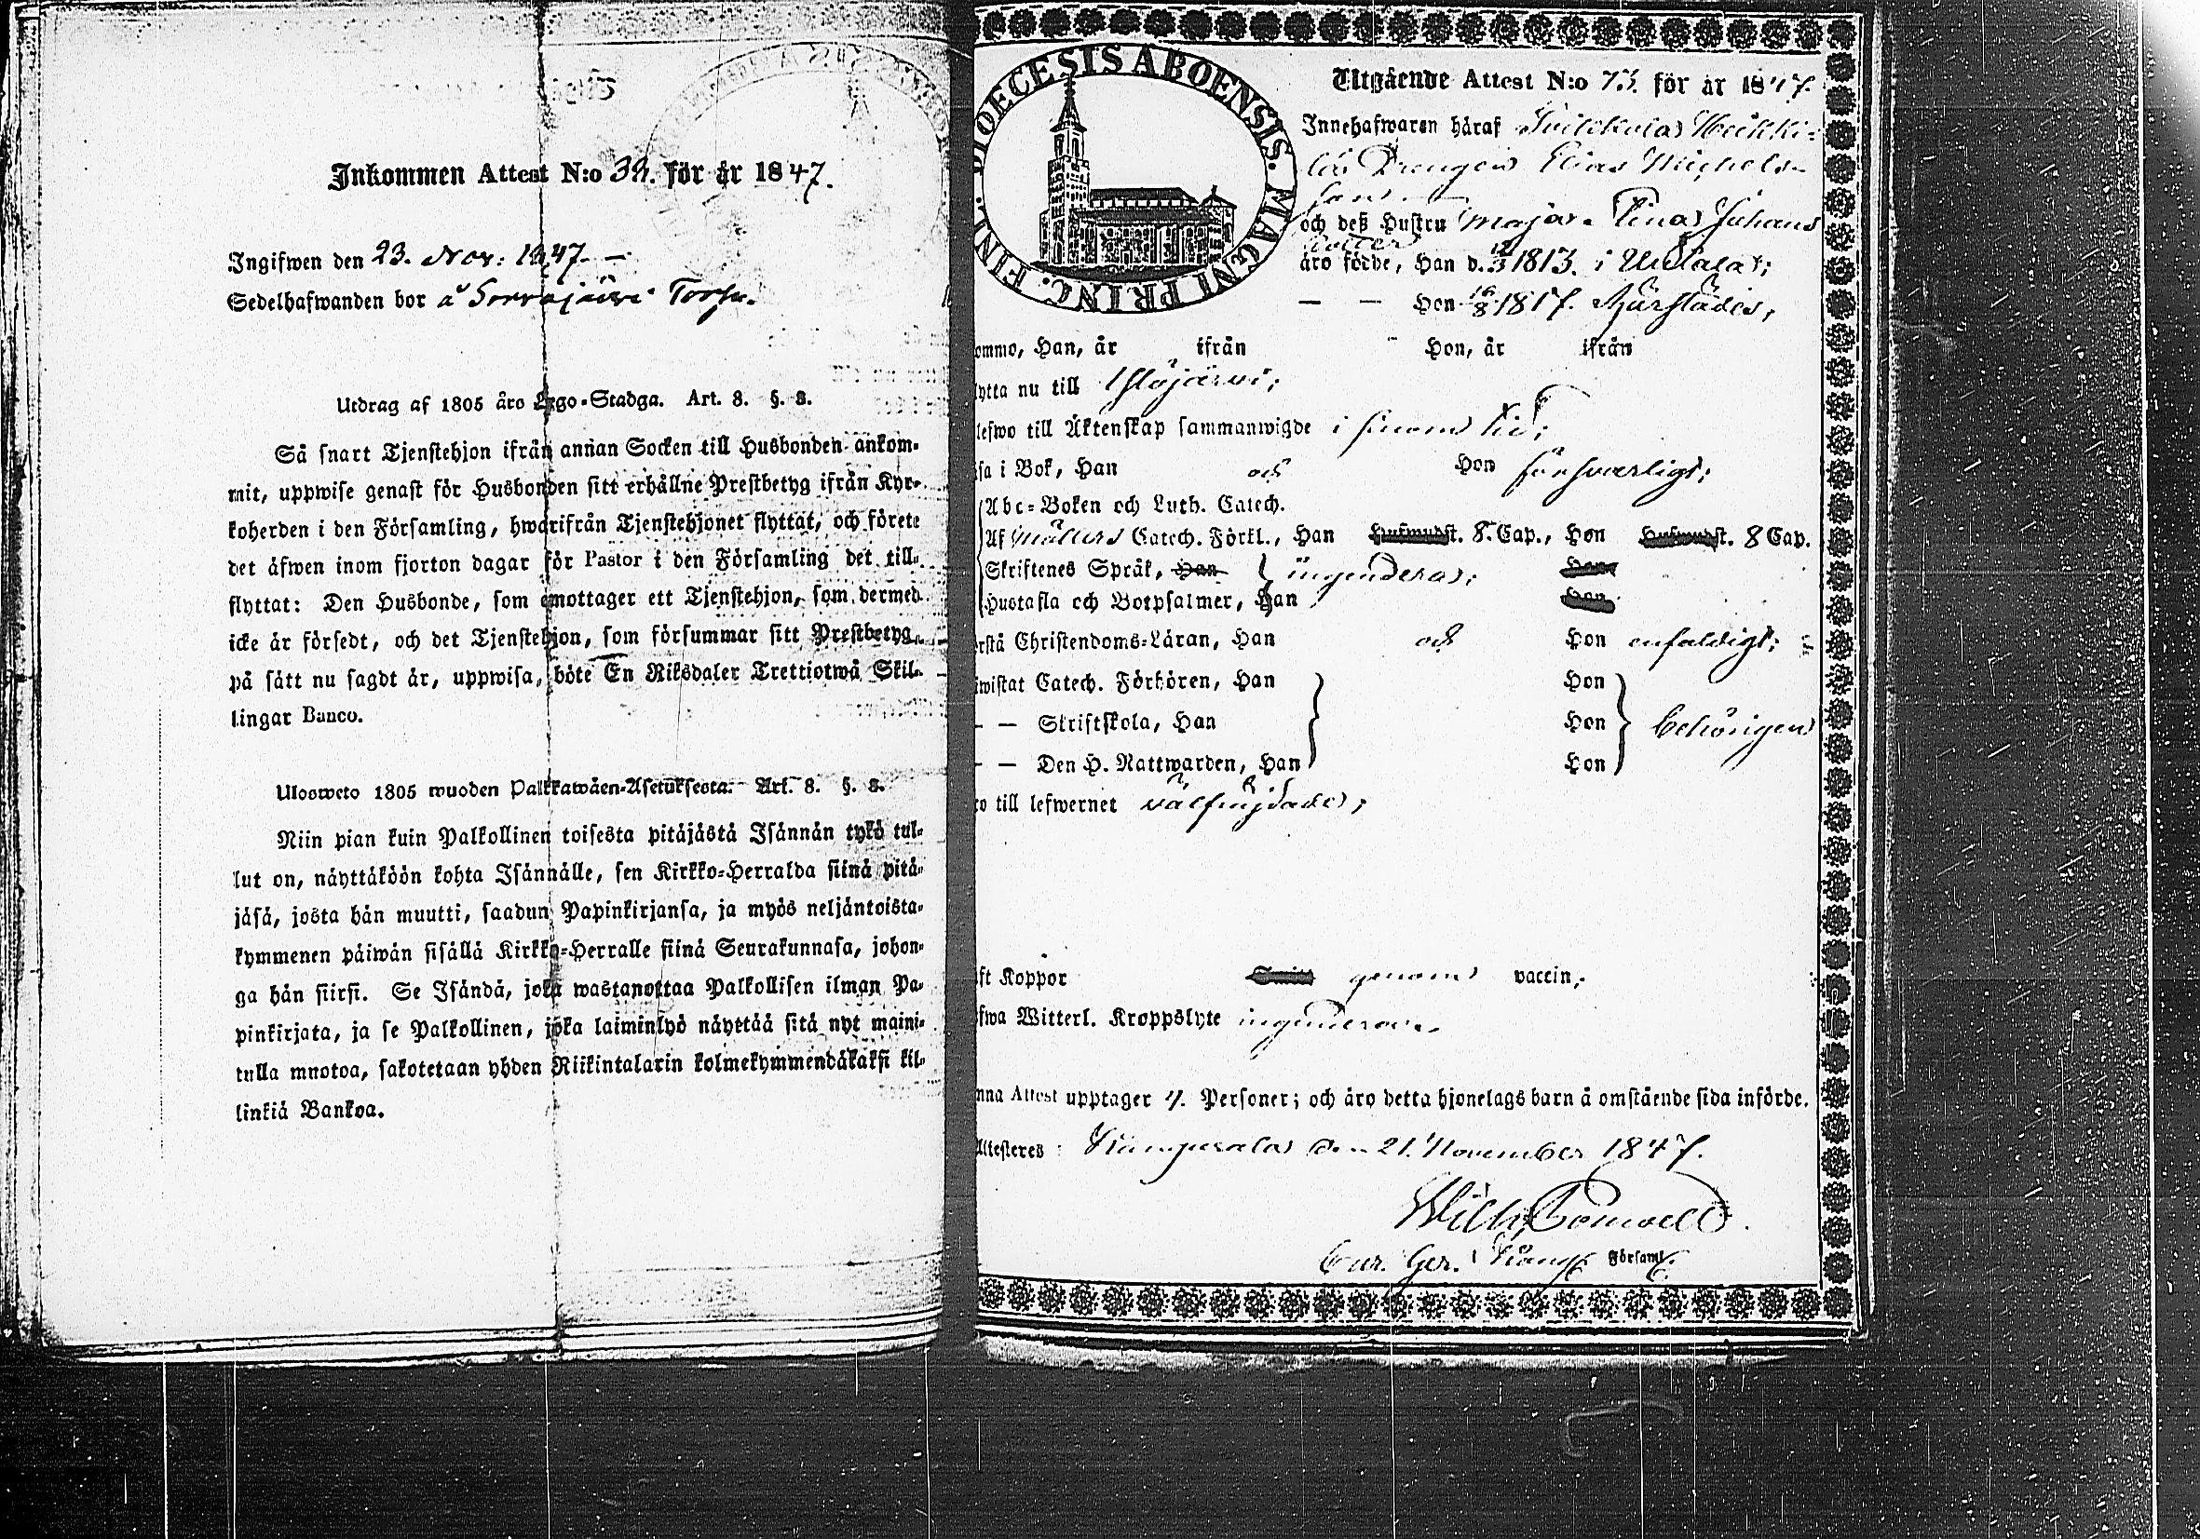 Inkommen Attest N:o 39. för år 1847.
Ingifwen den 23. Nov: 1847. –
Sedelhafwanden bor å Sorvajärvi Torp.
Utdrag af 1805 års Lego-Stadga. Art. 8. §. 8.
Så snart Tjenstehjon ifrån annan Socken till Husbonden ankom-
mit, uppwise genast för Husbonden sitt erhållne Prestbetyg ifrån Kyr-
koherden i den Församling, hwarifrån Tjenstehjonet flyttat, och förete
det äfwen inom fjorton dagar för Pastor i den Församling det till-
flyttat: Den Husbonde, som emottager ett Tjenstehjon, som dermed
icke är försedt, och det Tjenstehjon, som försummar sitt Prestbetyg
på sätt nu sagdt är, uppwisa, böte En Riksdaler Trettiotwå Skil-
lingar Banco.
Ulosweto 1805 wuoden Palkkawäen-Asetuksesta. Art. 8. §. 8.
Niin pian kuin Palkollinen toisesta pitäjästä Isännän tykö tul-
lut on, näyttäköön kohta Isännälle, sen Kirkko-Herralda siinä pitä-
jäsä, josta hän muutti, saadun Papinkirjansa, ja myös neljäntoista-
kymmenen päiwän sisällä Kirkko-Herralle siinä Seurakunnasa, johon-
ga hän siirsi. Se Isändä, joka wastanottaa Palkollisen ilman Pa-
pinkirjata, ja se Palkollinen, joka laiminlyö näyttää sitä nyt maini-
tulla muotoa, sakotetaan yhden Riikintalarin kolmekymmendäkaksi kil-
linkiä Bankoa.
DIOECESIS ABOENSIS. MAGNI PRINC. FINL.
Utgående Attest N:o 73. för år 1847.
Innehafwaren häraf Heikki-
lä Drengen Elias Michels-
son
och deß Hustru Maja Stina Johans
dotter
äro födde, Han d. 1813. i
– – Hon 16/8 1817. härstädes,
ommo, Han, år ifrån Hon, år ifrån
lytta nu till Ylöjärvi;
lefwo till Äktenskap sammanwigde i sinom tid;
sa i Bok, Han och Hon försvarligt;
Abc-Boken och Luth. Catech.
Af Möllers Catech. Förkl., Han Hufwudst. 8. Cap., Hon Hufwudst. 8 Cap.
Skriftenes Språk, Han ingendera; Hon
Hustafla och Botpsalmer, Han Hon
rstå Christendoms-Läran, Han och Hon enfaldigt;
wistat Catech. Förhören, Han Hon
– – Skriftskola, Han Hon behörigen
– – Den H. Nattwarden, Han Hon
ro till lefwernet välfrejdade;
ft Koppor genom vaccin;
fwa Witterl. Kroppslyte ingendera.
nna Attest upptager 4. Personer; och äro detta hjonelags barn å omstående sida införde.
Attesteres Kangasala den 21. November 1847.
Wilh.
Cur. Ger. i Kang. Församl.